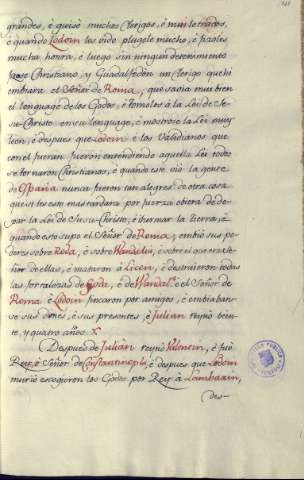 grandes, é quisó muchos Clerigos, é mui letrados,
é quando Lodoin les vido plugole mucho, é fizoles
mucha honra, é luego sin ningun detenimiento
fizose Christiano, y Guadalfedon un Clerigo que hi
embiara el Señor de Roma, que sacia mui bien
el lenguage de los Godos, é tornolos à la Lei de Je-
su-Christo en su lenguage, é mostroles la Lei mui
bien, é despues que Lodoin é los Validianos que
con el fueran fueron entendiendo aquella Lei todos
se tornaron Christianos, é quando esto vio la gente
de España nunca fueron tan alegres de otra cosa
que antes esto mas tardara por fuerza obiera de de-
jar la Lei de Jesu-Christo, é hermar la tierra, é
quando esto supo el Señor de Roma, embió sus po-
deres sobre Roda, é sobre Wandalia, é sobre el que era Se-
ñor de ellas, é mataron à Licen, é destruieron todas
las fortalezas de Roda, é de Wandalª é el Señor de
Roma é Lodoin fincaron por amigos, é embiaban-
se sus dones, é sus presentes, é Julian reynó bein-
te, y quatro años. X
Despues de Julian reynó Valencin, é fuè
Rey, é Señor de Constantinopla, é despues que Lodoin
murió escogieron los Godos por Rey à Lambarin,
des-